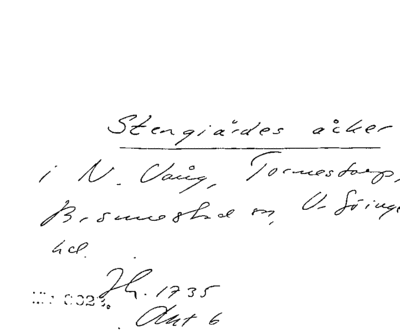 Stengiärdes åker
i N. Vång, Tormestorp,
Brönnestad sn, V. Göinge
hd.
Jh. 1735
Akt 6